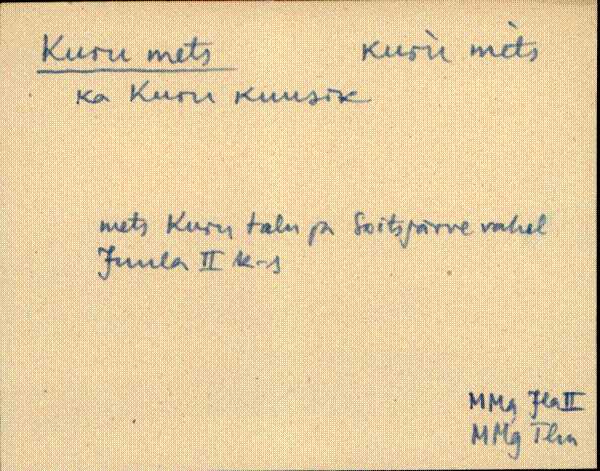 Kuru mets kurù mèts
ka Kuru kuusik
mets Kuru talu ja Soitsjärve vahel
Juula II k-s
MMg Jla II
MMg